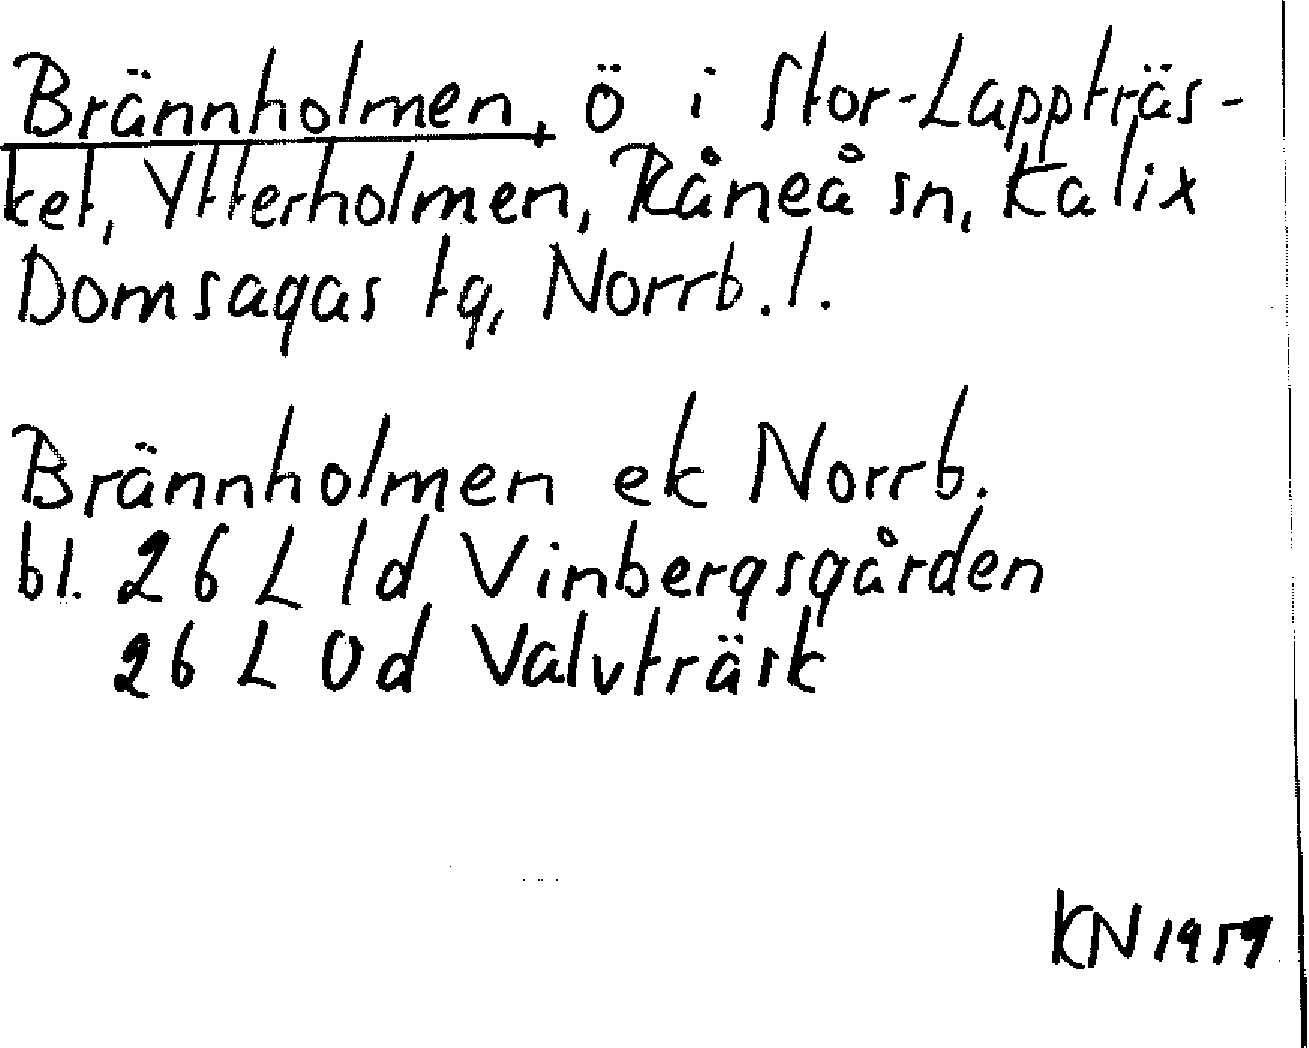 Brännholmen, ö i Stor-Lappträs-
ket, Ytterholmen, Råneå sn, Kalix
Domsagas tg, Norrb. l.
Brännholmen ek Norrb.
bl. 26 L 1d Vinbergsgården
26 L 0d Valvträsk
KN 1959